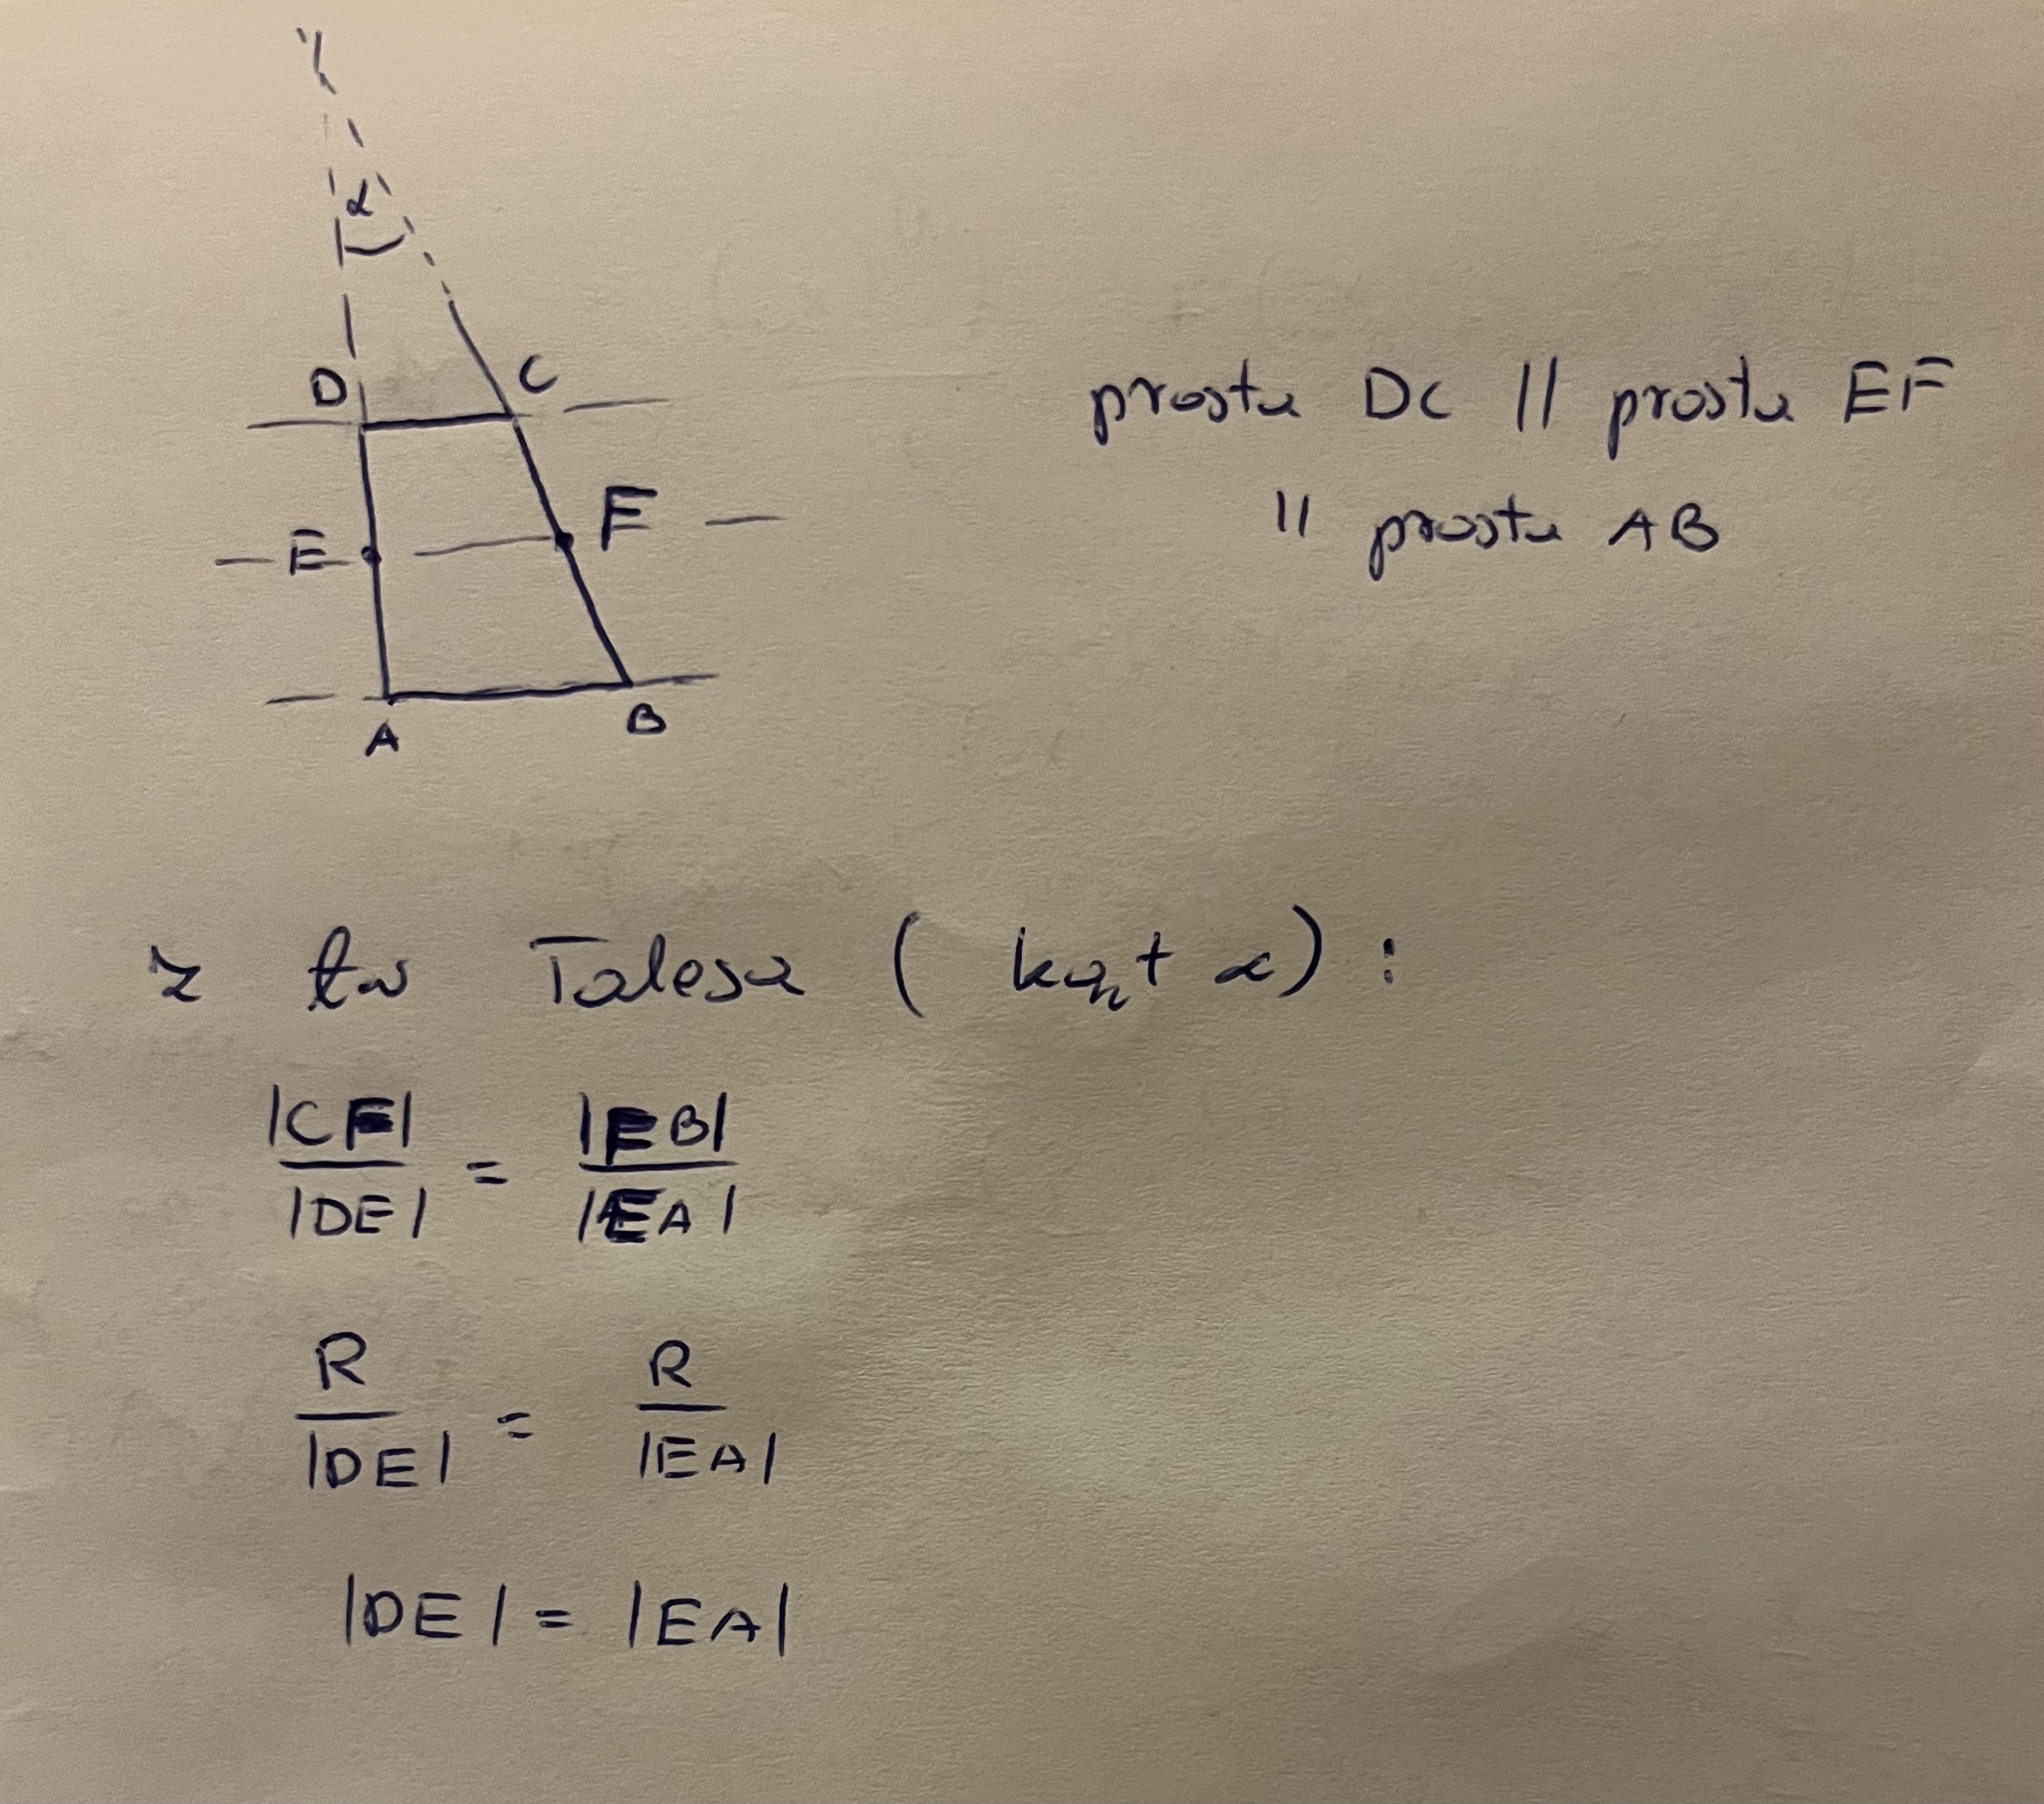 α
D C
E F
A B
prosta DC || prosta EF
|| prosta AB
z tw Talesa ( kąt α ) :
|CF| / |DE| = |FB| / |EA|
R / |DE| = R / |EA|
|DE| = |EA|